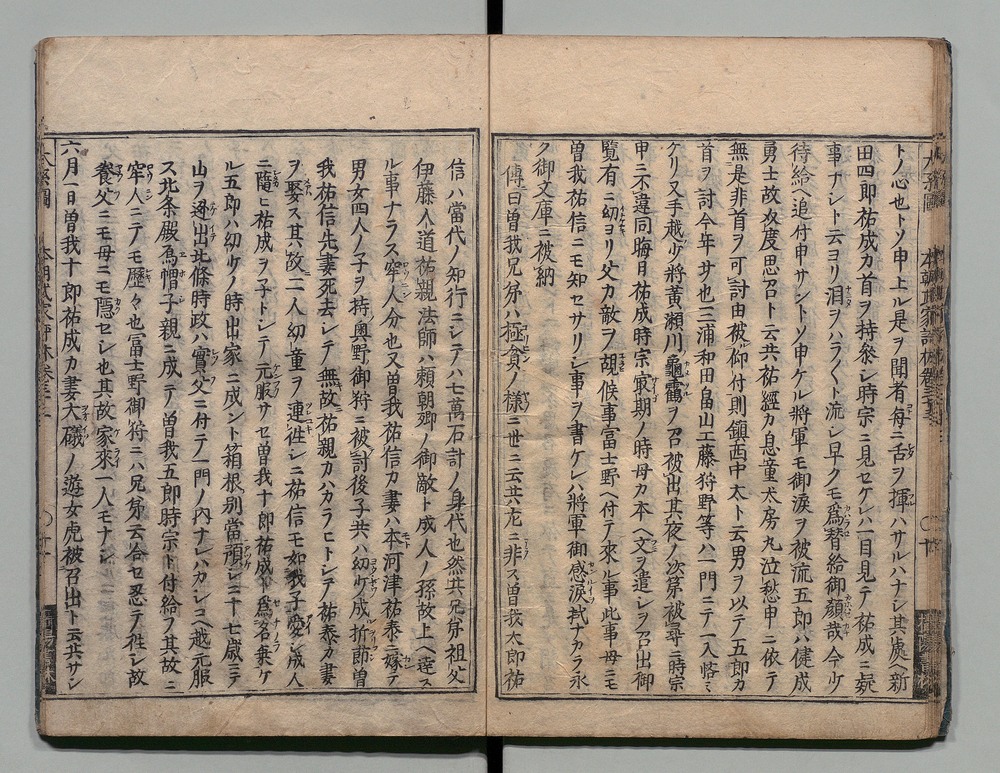 トノ心也トソ申上ル是ヲ聞者毎ニ舌ヲ揮ハサルハナシ其處ヘ新
田四郎祐成カ首ヲ持參シ時宗ニ見セケレハ一目見テ祐成ニ疑
事ナシト云ヨリ泪ヲハラ〱ト流シ早クモ為替給御顔哉今少
待給ヘ追付申サントソ申ケル將軍モ御涙ヲ被流五郎ハ健成
勇士故攻度思召ト云共祐經カ息童犬房丸泣愁申ニ依テ
無是非首ヲ可討由被仰付則鎮西中太ト云男ヲ以テ五郎カ
首ヲ討今年廿也三浦和田畠山工藤狩野等ハ一門ニテ一入
ケリ又手越少將黄瀬川龜靏ヲ召被出其夜ノ次第被尋ニ時宗
申ニ不違同晦日祐成時宗最期ノ時母カ本ヘ文ヲ遣シヲ召出御
覧有ニ幼ヨリ父カ敵ヲ覘候事冨士野ヘ付テ來ル事此事母ニモ
曽我祐信ニモ知セサリシ事ヲ書ケレハ將軍御感涙拭カラ永
ク御文庫ニ被納
傳曰曽我兄弟ハ極貪ノ様ニ世ニ云共尤ニ非ス曽我太郎祐
信ハ當代ノ知行ニシテハ七萬石計ノ身代也然共兄弟祖父
伊藤入道祐親法師ハ頼朝卿ノ御敵ト成人ノ孫故上ヘ幸ス
ル事ナラス窂人分也又曽我祐信カ妻ハ本河津祐泰ニ嫁テ
男女四人ノ子ヲ持奥野御狩ニ被討後子共ハ幼ケ成折節曽
我祐信先妻死去シテ無故祐親カハカラヒトシテ祐泰カ妻
ヲ娶ス其故二人幼童ヲ連徃シニ祐信モ如我子愛シ成人
ニ隨ヒ祐成ヲ子トシテ元服サセ曽我十郎祐成ト為名乗ケ
ル五郎ハ幼ケノ時出家ニ成ント箱根別當預シニ十七歳ニテ
山ヲ逃出北條時政ハ實父ニ付テ一門ノ内ナレハカシコヘ越元服
ス北条殿為帽子親ニ成テ曽我五郎時宗ト付給フ其故ニ
窂人ニテモ歴々也冨士野御狩ニハ兄弟云合セ忍テ徃シ故
養父ニモ母ニモ隠セシ也其故家來一人モナシ
六月一日曽我十郎祐成カ妻大礒ノ遊女虎被召出ト云共サシ